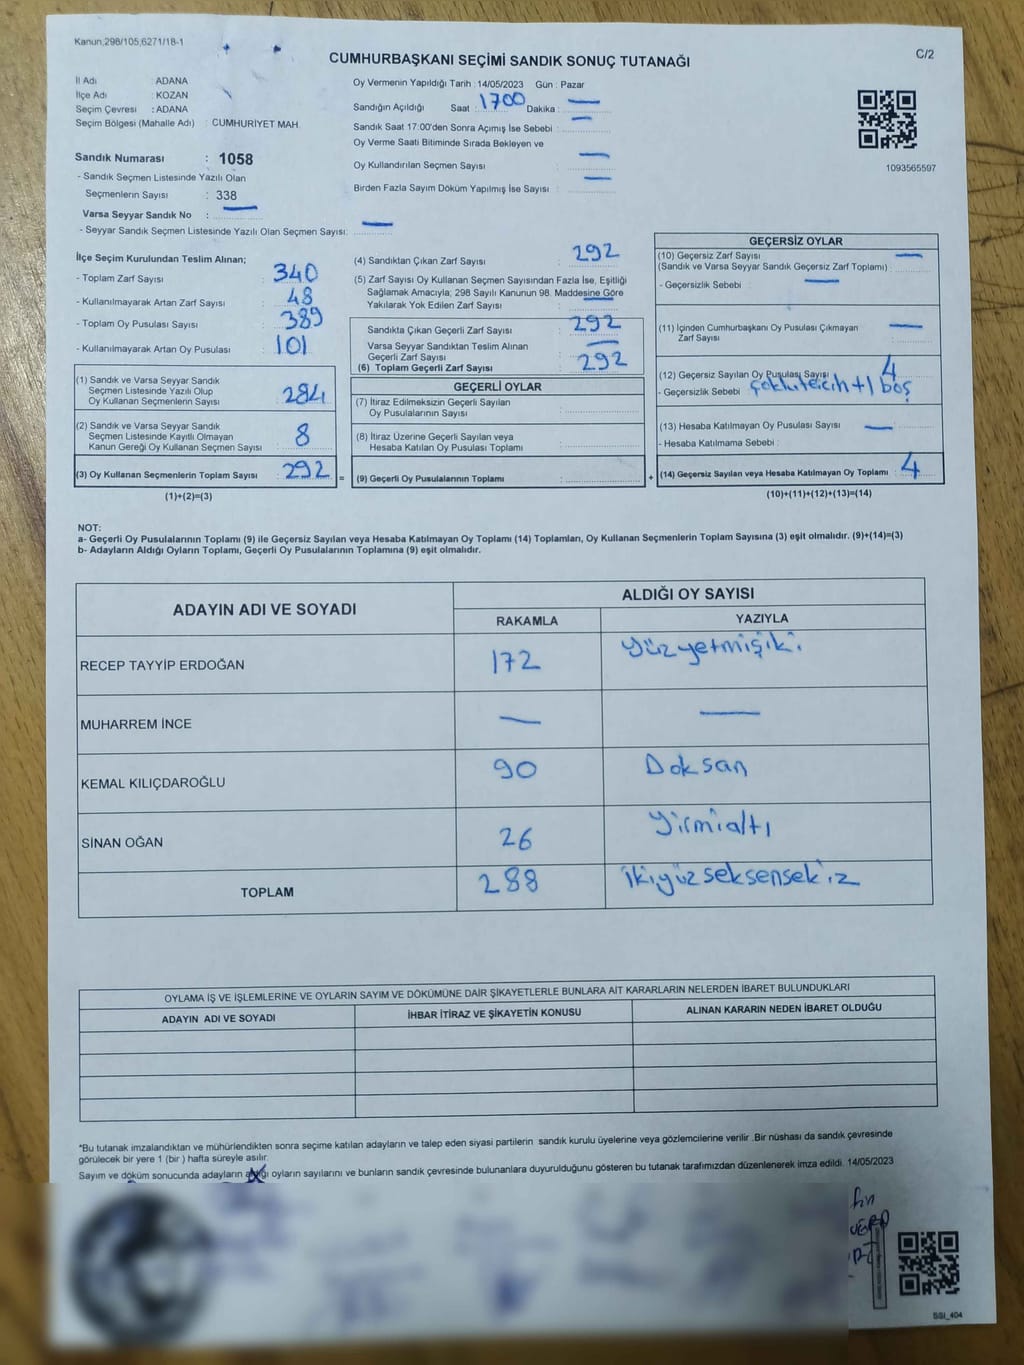 Kanun;298/105;6271/18-1
C/2
CUMHURBAŞKANI SEÇİMİ SANDIK SONUÇ TUTANAĞI
İl Adı : ADANA
İlçe Adı : KOZAN
Seçim Çevresi : ADANA
Seçim Bölgesi (Mahalle Adı) : CUMHURİYET MAH.
Oy Vermenin Yapıldığı Tarih : 14/05/2023 Gün : Pazar
Sandığın Açıldığı Saat : 1700 Dakika : —
Sandık Saat 17:00'den Sonra Açımış İse Sebebi : —
Oy Verme Saati Bitiminde Sırada Bekleyen ve
Oy Kullandırılan Seçmen Sayısı : —
Birden Fazla Sayım Döküm Yapılmış İse Sayısı : —
1093565597
Sandık Numarası : 1058
- Sandık Seçmen Listesinde Yazılı Olan
Seçmenlerin Sayısı : 338
Varsa Seyyar Sandık No : —
- Seyyar Sandık Seçmen Listesinde Yazılı Olan Seçmen Sayısı: —
İlçe Seçim Kurulundan Teslim Alınan;
- Toplam Zarf Sayısı : 340
- Kullanılmayarak Artan Zarf Sayısı : 48
- Toplam Oy Pusulası Sayısı : 389
- Kullanılmayarak Artan Oy Pusulası : 101
(1) Sandık ve Varsa Seyyar Sandık
Seçmen Listesinde Yazılı Olup
Oy Kullanan Seçmenlerin Sayısı : 284
(2) Sandık ve Varsa Seyyar Sandık
Seçmen Listesinde Kayıtlı Olmayan
Kanun Gereği Oy Kullanan Seçmen Sayısı : 8
(3) Oy Kullanan Seçmenlerin Toplam Sayısı : 292 =
(1)+(2)=(3)
(4) Sandıktan Çıkan Zarf Sayısı : 292
(5) Zarf Sayısı Oy Kullanan Seçmen Sayısından Fazla İse, Eşitliği
Sağlamak Amacıyla; 298 Sayılı Kanunun 98. Maddesine Göre
Yakılarak Yok Edilen Zarf Sayısı : —
Sandıkta Çıkan Geçerli Zarf Sayısı : 292
Varsa Seyyar Sandıktan Teslim Alınan
Geçerli Zarf Sayısı : —
(6) Toplam Geçerli Zarf Sayısı : 292
GEÇERLİ OYLAR
(7) İtiraz Edilmeksizin Geçerli Sayılan
Oy Pusulalarının Sayısı :
(8) İtiraz Üzerine Geçerli Sayılan veya
Hesaba Katılan Oy Pusulası Toplamı :
(9) Geçerli Oy Pusulalarının Toplamı : +
GEÇERSİZ OYLAR
(10) Geçersiz Zarf Sayısı
(Sandık ve Varsa Seyyar Sandık Geçersiz Zarf Toplamı) : —
- Geçersizlik Sebebi : —
(11) İçinden Cumhurbaşkanı Oy Pusulası Çıkmayan
Zarf Sayısı : —
(12) Geçersiz Sayılan Oy Pusulası Sayısı : 4
- Geçersizlik Sebebi : +1 boş
(13) Hesaba Katılmayan Oy Pusulası Sayısı : —
- Hesaba Katılmama Sebebi :
(14) Geçersiz Sayılan veya Hesaba Katılmayan Oy Toplamı : 4
(10)+(11)+(12)+(13)=(14)
NOT:
a- Geçerli Oy Pusulalarının Toplamı (9) ile Geçersiz Sayılan veya Hesaba Katılmayan Oy Toplamı (14) Toplamları, Oy Kullanan Seçmenlerin Toplam Sayısına (3) eşit olmalıdır. (9)+(14)=(3)
b- Adayların Aldığı Oyların Toplamı, Geçerli Oy Pusulalarının Toplamına (9) eşit olmalıdır.
ADAYIN ADI VE SOYADI
ALDIĞI OY SAYISI
RAKAMLA YAZIYLA
RECEP TAYYİP ERDOĞAN 172 Yüzyetmişiki
MUHARREM İNCE — —
KEMAL KILIÇDAROĞLU 90 Doksan
SİNAN OĞAN 26 Yirmialtı
TOPLAM 288 ikiyüzseksensekiz
OYLAMA İŞ VE İŞLEMLERİNE VE OYLARIN SAYIM VE DÖKÜMÜNE DAİR ŞİKAYETLERLE BUNLARA AİT KARARLARIN NELERDEN İBARET BULUNDUKLARI
ADAYIN ADI VE SOYADI İHBAR İTİRAZ VE ŞİKAYETİN KONUSU ALINAN KARARIN NEDEN İBARET OLDUĞU
*Bu tutanak imzalandıktan ve mühürlendikten sonra seçime katılan adayların ve talep eden siyasi partilerin sandık kurulu üyelerine veya gözlemcilerine verilir .Bir nüshası da sandık çevresinde
görülecek bir yere 1 (bir ) hafta süreyle asılır.
Sayım ve döküm sonucunda adayların aldığı oyların sayılarını ve bunların sandık çevresinde bulunanlara duyurulduğunu gösteren bu tutanak tarafımızdan düzenlenerek imza edildi. 14/05/2023
SSI_404